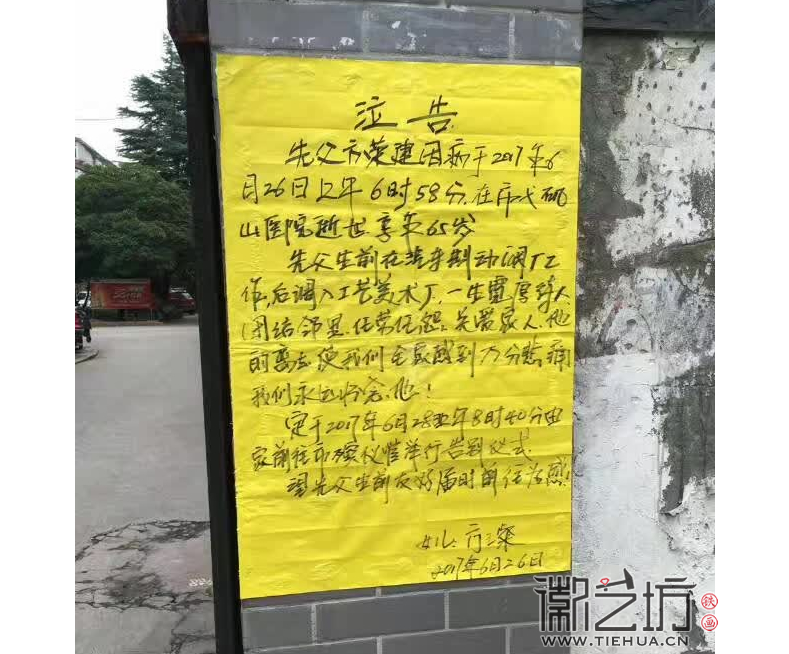 泣告
先父方荣建因病于2017年6
月26日上午6时58分,在市弋矶
山医院逝世享年65岁
先父生前在芜乎制动阀厂工
作,后调入工艺美术厂,一生宽厚待人
团结邻里,任劳任怨,关爱家人,他
的离去使我们全家感到万分悲痛
我们永远怀念他!
定于2017年6月28上午8时40分由
家前往市殡仪馆举行告别仪式
望先父生前友好届时前往为感!
女儿:方璨
2017年6月26日
徽艺坊
铁画
WWW.TIEHUA.CN